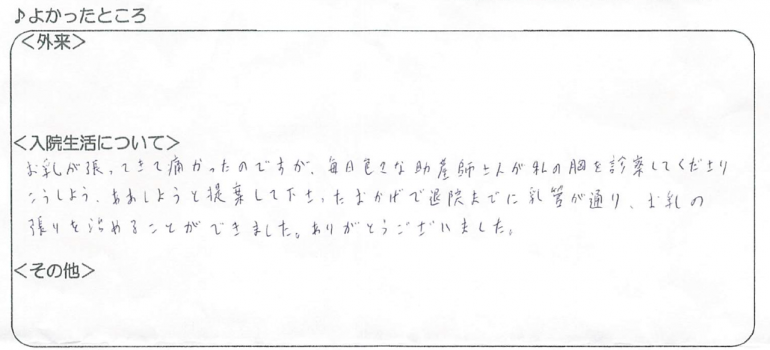 ♪よかったところ
<外来>
<入院生活について>
お乳が張ってきて痛かったのですが、毎日色々な助産師さんが私の胸を診察してくださり
こうしよう、ああしようと提案して下さったおかげで退院までに乳管が通り、お乳の
張りを沈めることができました。ありがとうございました。
<その他>